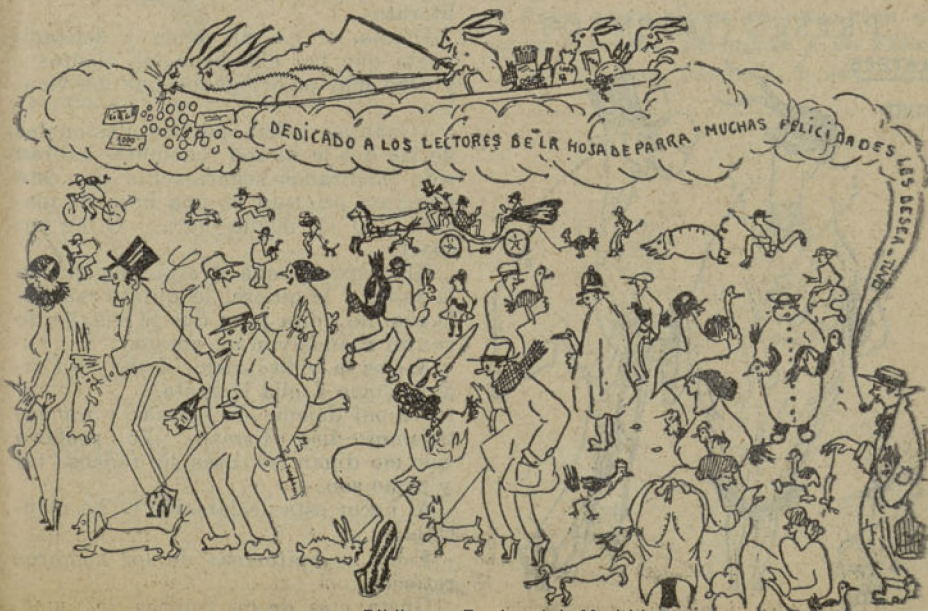 DEDICADO A LOS LECTORES DE "LA HOJA DE PARRA" MUCHAS FELICIDADES LES DESEA "TUL
1000